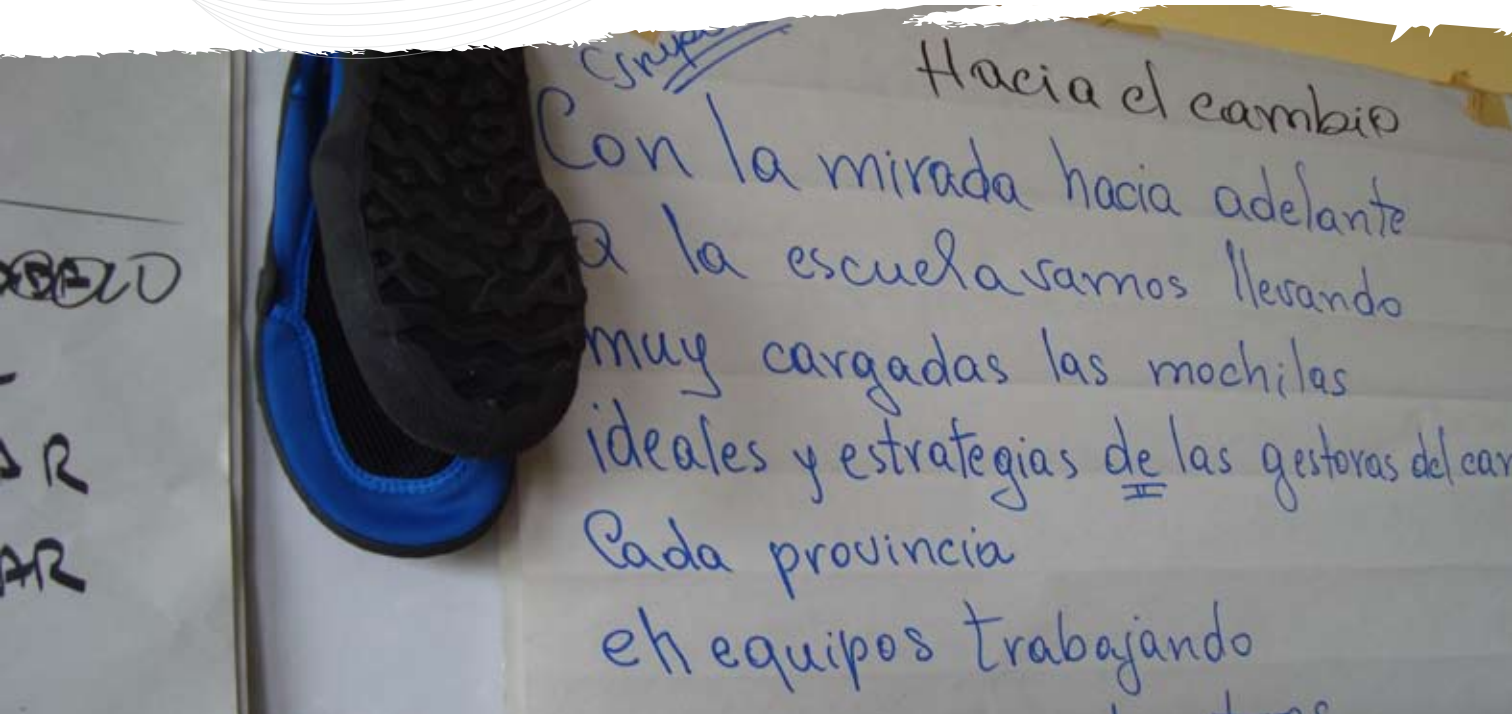 Hacia el cambio
Con la mirada hacia adelante
a la escuela vamos llevando
muy cargadas las mochilas
ideales y estrategias de las gestoras del
Cada provincia
en equipos trabajando